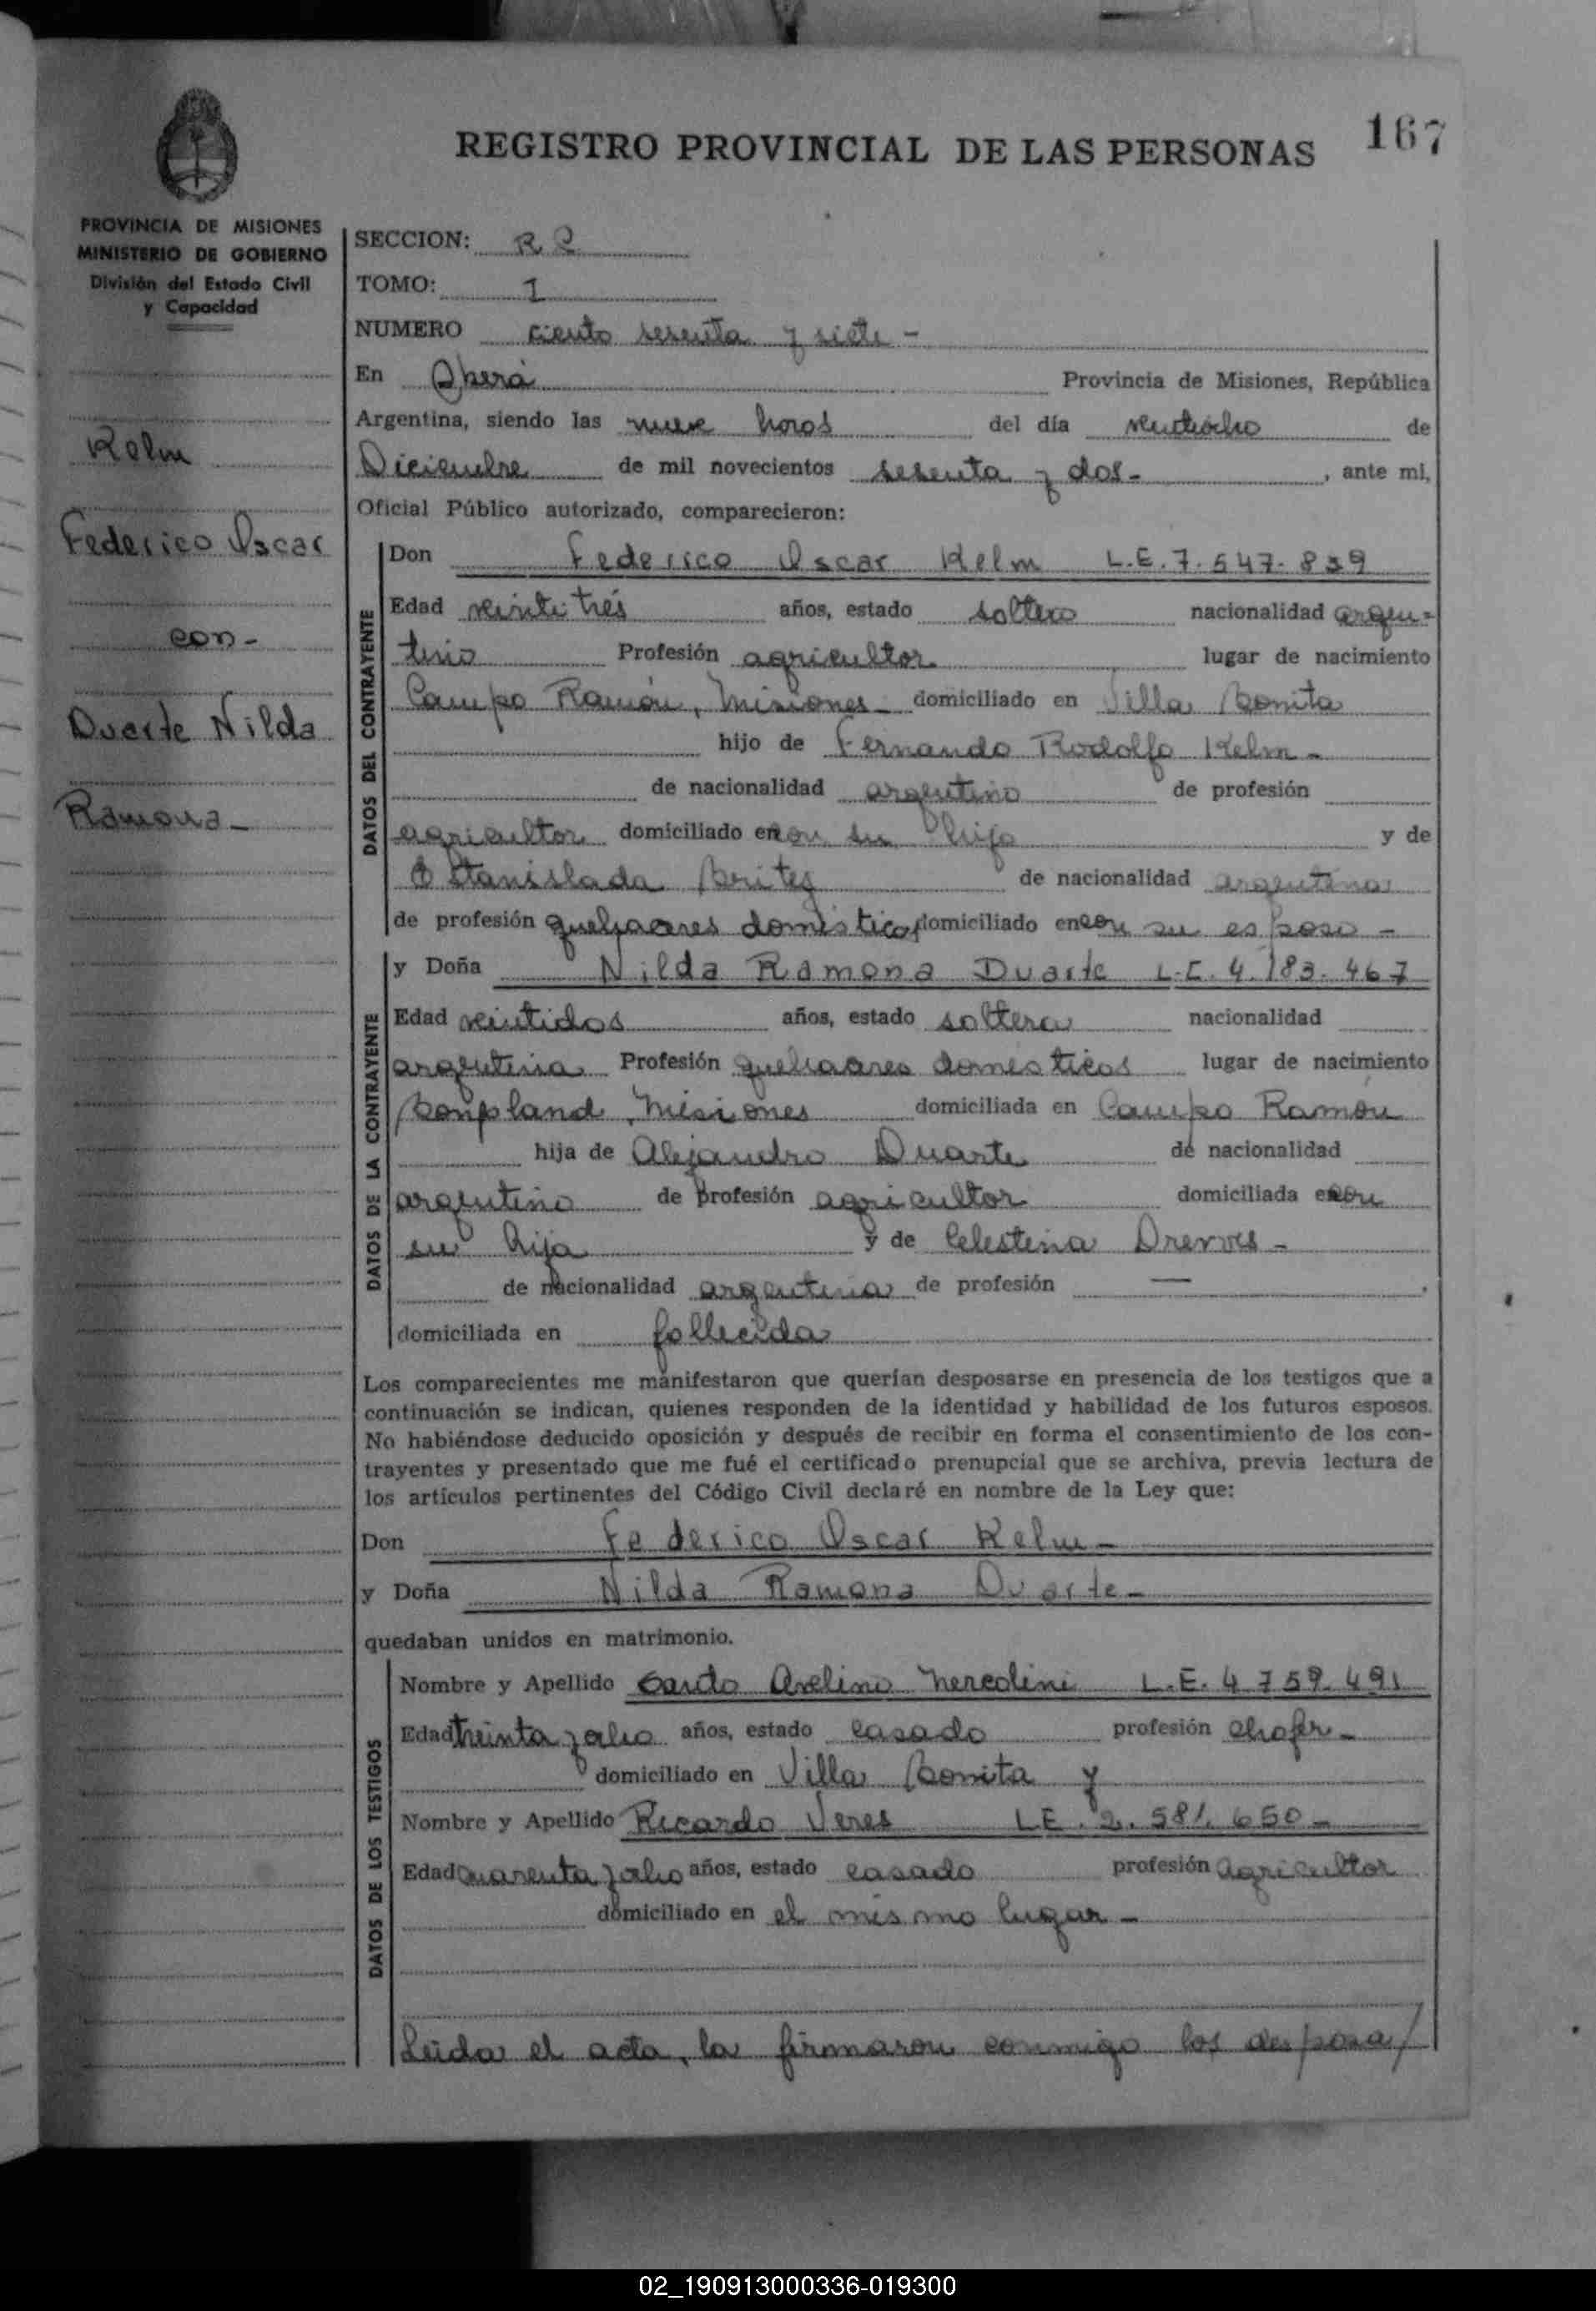 REGISTRO PROVINCIAL DE LAS PERSONAS 167
PROVINCIA DE MISIONES
MINISTERIO DE GOBIERNO
División del Estado Civil
y Capacidad
Kelm
Federico Oscar
con-
Duarte Nilda
Ramona-
SECCION: R
TOMO: 1
NUMERO ciento sesenta y siete -
En Oberá Provincia de Misiones, República
Argentina, siendo las nueve horas del día veintiocho de
Diciembre de mil novecientos sesenta y dos- , ante mi,
Oficial Público autorizado, comparecieron:
DATOS DEL CONTRAYENTE
Don Federico Oscar Kelm L.E. 7.547.839
Edad veinte trés años, estado soltero nacionalidad argen-
tino Profesión agricultor lugar de nacimiento
Campo Ramón, Misiones- domiciliado en Villa Bonita
hijo de Fernando Rodolfo Kelm-
de nacionalidad argentino de profesión
agricultor domiciliado en con su hijo y de
Estanislada Britez de nacionalidad argentina
de profesión quehaceres domésticos domiciliado en con su esposo -
DATOS DE LA CONTRAYENTE
y Doña Nilda Ramona Duarte L.C. 4.183.467
Edad veintidos años, estado soltera nacionalidad
argentina Profesión quehaceres domésticos lugar de nacimiento
Bonpland, Misiones domiciliada en Campo Ramón
hija de Alejandro Duarte de nacionalidad
argentino de profesión agricultor domiciliada en con
su hija y de Celestina -
de nacionalidad argentina de profesión —
domiciliada en fallecida
Los comparecientes me manifestaron que querían desposarse en presencia de los testigos que a
continuación se indican, quienes responden de la identidad y habilidad de los futuros esposos.
No habiéndose deducido oposición y después de recibir en forma el consentimiento de los con-
trayentes y presentado que me fué el certificado prenupcial que se archiva, previa lectura de
los artículos pertinentes del Código Civil declaré en nombre de la Ley que:
Don Federico Oscar Kelm-
y Doña Nilda Ramona Duarte-
quedaban unidos en matrimonio.
DATOS DE LOS TESTIGOS
Nombre y Apellido Avelino L.E. 4.759.491
Edad treinta y ocho años, estado casado profesión chofer-
domiciliado en Villa Bonita y
Nombre y Apellido Ricardo Veres LE. 2.581.650-
Edad cuarenta y ocho años, estado casado profesión agricultor
domiciliado en el mismo lugar-
Leída el acta, la firmaron conmigo los desposa/
02_190913000336-019300